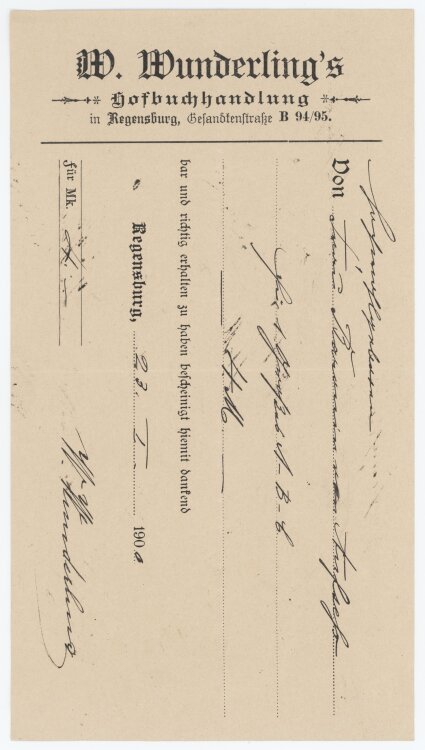 W. Wunderling's
Hofbuchhandlung
in Regensburg, Gesandtenstraße B 94/95.
Von Frau
Für 1 A-B-C
4 M
bar und richtig erhalten zu haben bescheinigt hiemit dankend
Regensburg, 23. I. 1900
für Mk. 4.–
W. Wunderling